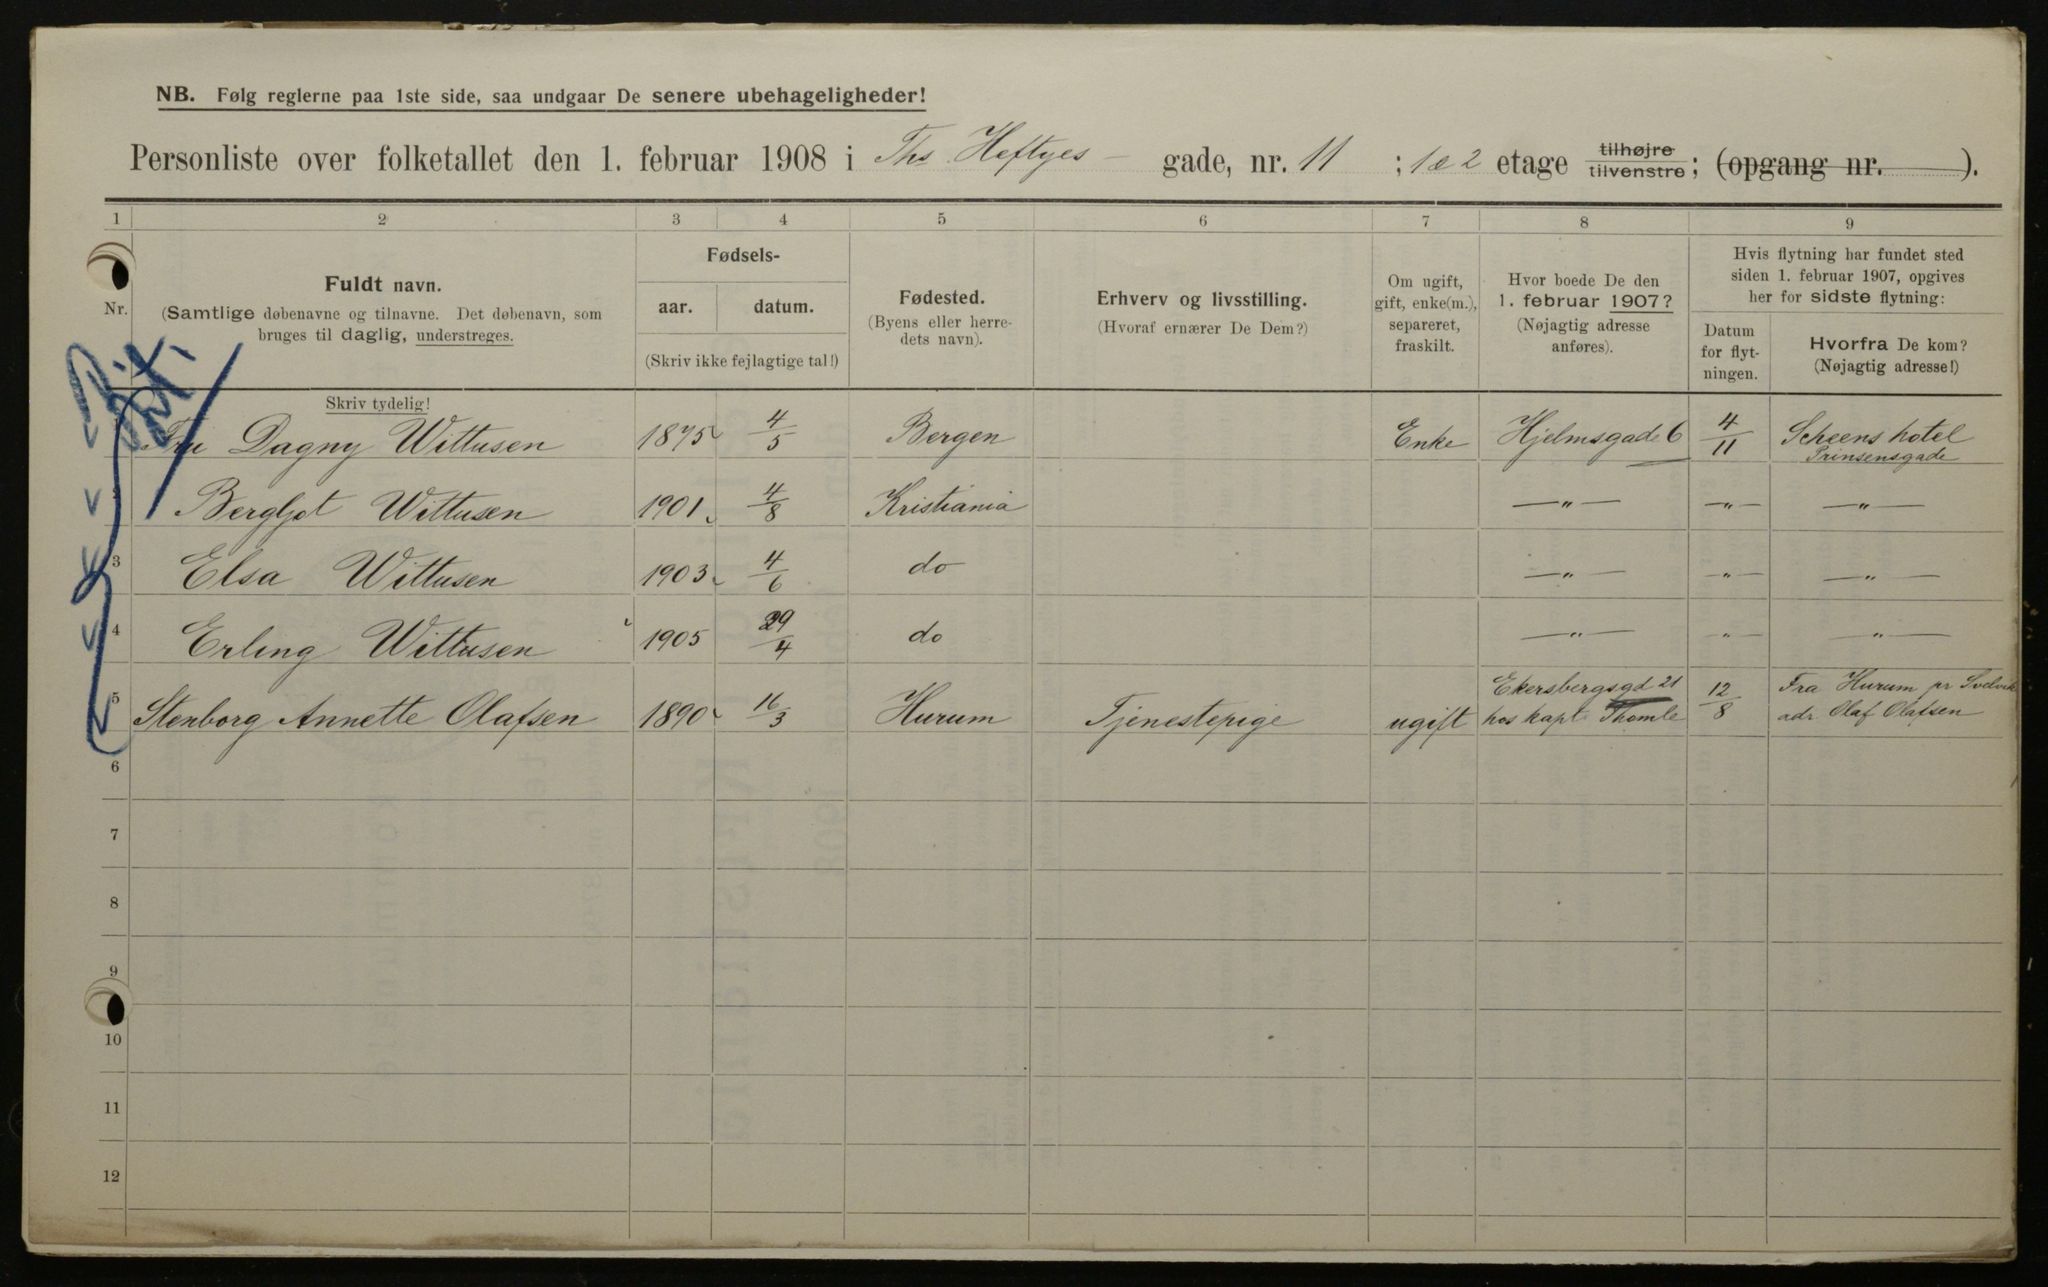 NB. Følg reglerne paa 1ste side, saa undgaar De senere ubehageligheder!
Personliste over folketallet den 1. februar 1908 i Ths Heftyes gade, nr. 11 ; 1 & 2 etage tilhøjre tilvenstre; (opgang nr. ).
1 2 3 4 5 6 7 8 9
Nr.
Fuldt navn.
(Samtlige døbenavne og tilnavne. Det døbenavn, som
bruges til daglig, understreges.
Skriv tydelig!
Fødsels-
aar. datum.
(Skriv ikke fejlagtige tal!)
Fødested.
(Byens eller herre-
dets navn).
Erhverv og livsstilling.
(Hvoraf ernærer De Dem?)
Om ugift,
gift, enke(m.),
separeret,
fraskilt.
Hvor boede De den
1. februar 1907?
(Nøjagtig adresse
anføres).
Hvis flytning har fundet sted
siden 1. februar 1907, opgives
her for sidste flytning:
Datum
for flyt-
ningen.
Hvorfra De kom?
(Nøjagtig adresse!)
Fru Dagny Wittusen 1875 4/5 Bergen Enke Hjelmsgade 6 4/11 Scheens hotel
Prinsensgade
2 Bergljot Wittusen 1901 4/8 Kristiania —„— —„— —„—
3 Elsa Wittusen 1903 4/6 do —„— —„— —„—
4 Erling Wittusen 1905 29/4 do —„— —„— —„—
5 Stenborg Annette Olafsen 1890 16/3 Hurum Tjenestepige ugift Ekersbergsgd 21
hos kapt. Thomle 12/8 Fra Hurum pr Svelvik
adr Olaf Olafsen
6
7
8
9
10
11
12